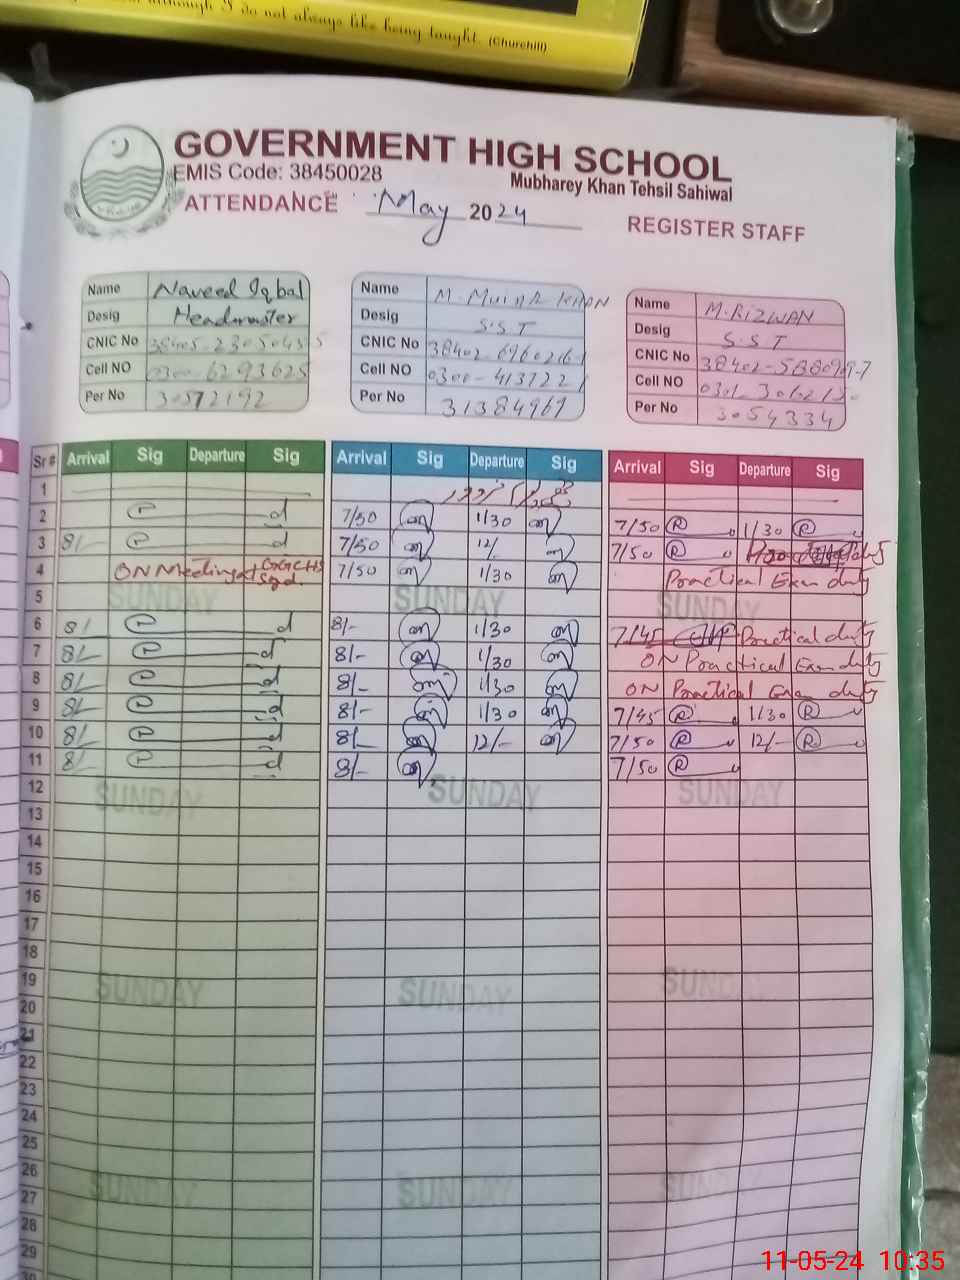 although I do not always like being taught. (Churchill)
GOVERNMENT HIGH SCHOOL
EMIS Code: 38450028
Mubharey Khan Tehsil Sahiwal
ATTENDANCE May 2024
REGISTER STAFF
Name Naveed Iqbal
Desig Headmaster
CNIC No
Cell NO 0300-6293625
Per No 30572192
Name M. Munir KHAN
Desig S.S.T
CNIC No
Cell NO
Per No 31384969
Name M. RIZWAN
Desig S.S.T
CNIC No
Cell NO
Per No 3054334
Sr # Arrival Sig Departure Sig Arrival Sig Departure Sig Arrival Sig Departure Sig
1
2 7/50 1/30 7/50 R 1/30 R
3 8/- 7/50 12/- 7/50 R
4 ON Meeting at GGCHS Sgd 7/50 1/30 Practical Exam duty
5 SUNDAY SUNDAY SUNDAY
6 8/- 8/- 1/30 7/45 Practical duty
7 8/- 8/- 1/30 ON Practical Exam duty
8 8/- 8/- 1/30 ON Practical Exam duty
9 8/- 8/- 1/30 7/45 R 1/30 R
10 8/- 8/- 12/- 7/50 R 12/- R
11 8/- 8/- 7/50 R
12 SUNDAY SUNDAY SUNDAY
13
14
15
16
17
18
19 SUNDAY SUNDAY SUNDAY
20
21
22
23
24
25
26 SUNDAY SUNDAY SUNDAY
27
28
29
30
11-05-24 10:35